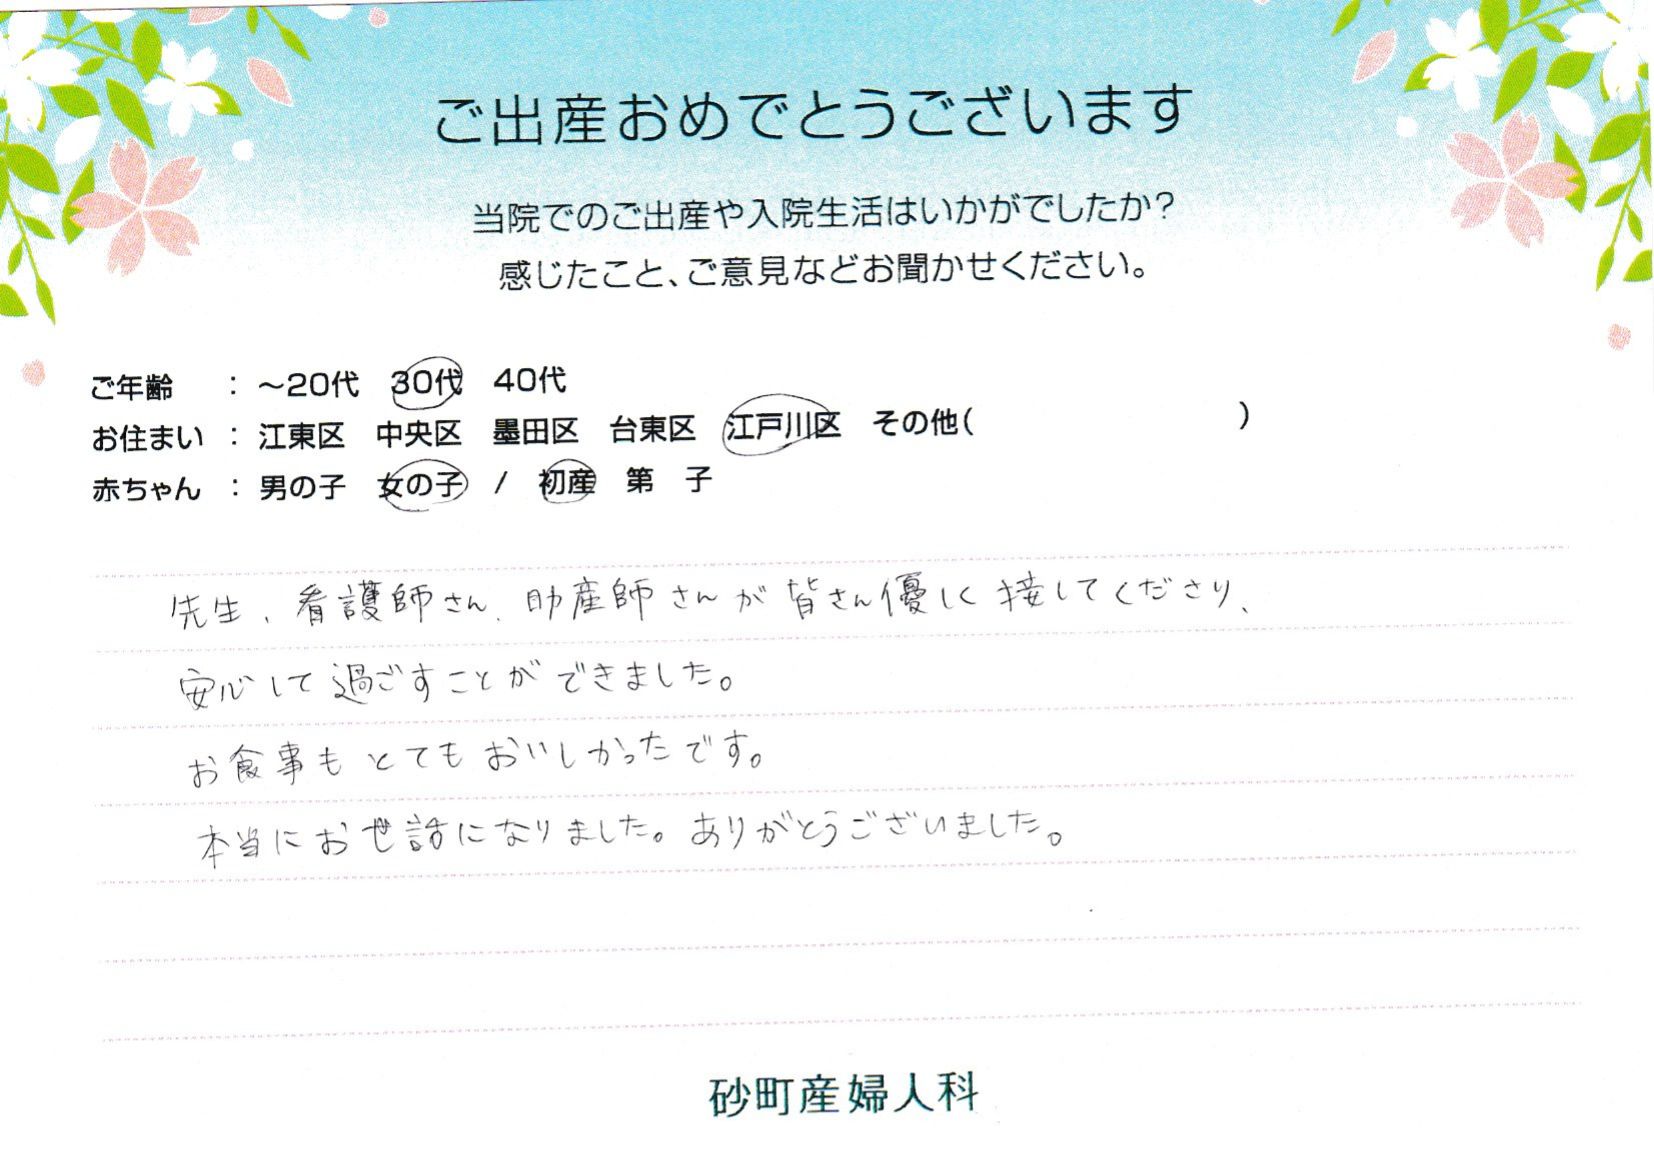 ご出産おめでとうございます
当院でのご出産や入院生活はいかがでしたか?
感じたこと、ご意見などお聞かせください。
ご年齢 : ～20代 30代 40代
お住まい : 江東区 中央区 墨田区 台東区 江戸川区 その他( )
赤ちゃん : 男の子 女の子 / 初産 第 子
先生、看護師さん、助産師さんが皆さん優しく接してくださり、
安心して過ごすことができました。
お食事もとてもおいしかったです。
本当にお世話になりました。ありがとうございました。
砂町産婦人科